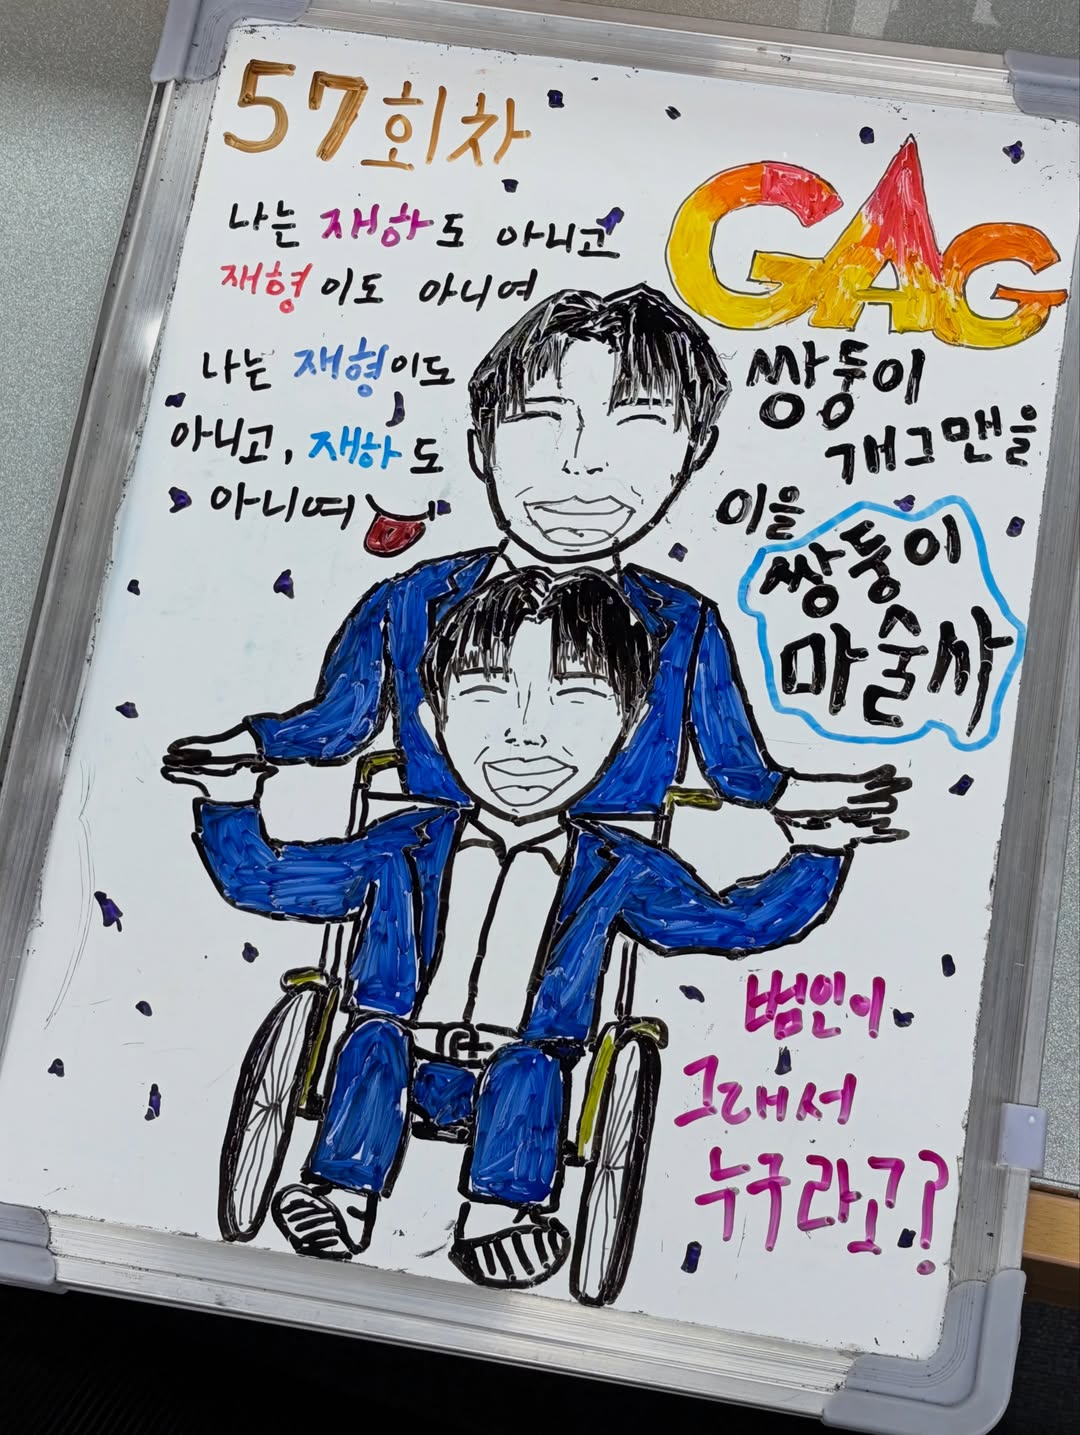 57회차
나는 재하도 아니고
재형이도 아니여
나는 재형이도
아니고, 재하도
아니여
GAG
쌍둥이
개그맨을
이을
쌍둥이
마술사
범인이
그래서
누구라고?